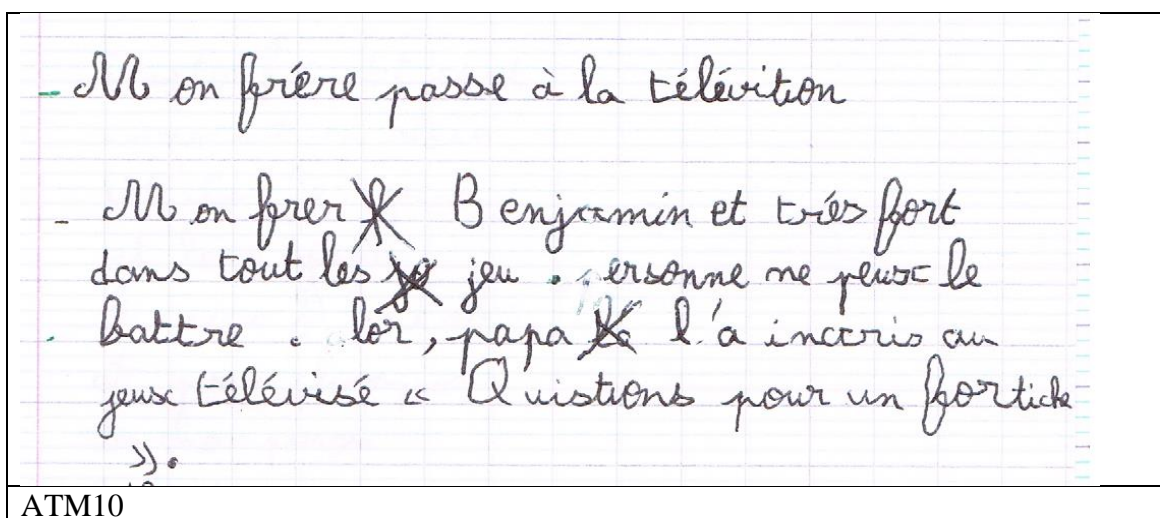 - Mon frère passe à la télévition
- Mon frer Benjamin et très fort
dans tout les jeu . ersonne ne peux le
battre . lor, papa l'a inscris au
jeux télévisé « Quistions pour un fortiche
».
ATM10